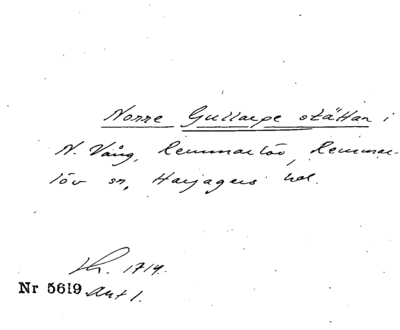 Norre Gullarpe stättan i
N. Vång, Remmarlöv, Remmar-
löv sn, Harjagers hd.
Lh. 1714.
Nr 5619 Akt 1.